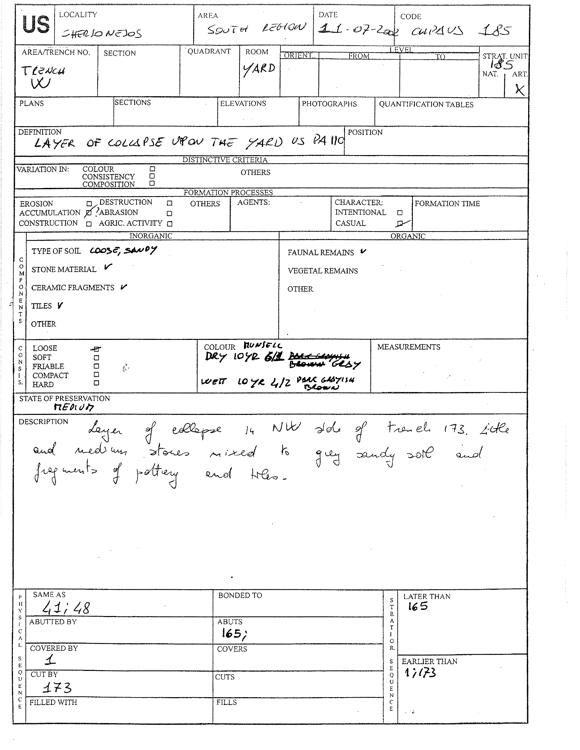 US
LOCALITY
CHERSONESOS
AREA
SOUTH REGION
DATE
11-07-2002
CODE
CHPAUS 185
AREA/TRENCH NO.
TRENCH
W
SECTION
QUADRANT
ROOM
YARD
LEVEL
ORIENT. FROM TO
STRAT. UNIT
185
NAT. ART.
X
PLANS
SECTIONS
ELEVATIONS
PHOTOGRAPHS
QUANTIFICATION TABLES
DEFINITION
LAYER OF COLLAPSE UPON THE YARD US PA 110
POSITION
DISTINCTIVE CRITERIA
VARIATION IN: COLOUR
CONSISTENCY
COMPOSITION
OTHERS
FORMATION PROCESSES
EROSION DESTRUCTION
ACCUMULATION ABRASION
CONSTRUCTION AGRIC. ACTIVITY
OTHERS
AGENTS:
CHARACTER:
INTENTIONAL
CASUAL
FORMATION TIME
COMPONENTS
INORGANIC
TYPE OF SOIL LOOSE, SANDY
STONE MATERIAL ✓
CERAMIC FRAGMENTS ✓
TILES ✓
OTHER
ORGANIC
FAUNAL REMAINS ✓
VEGETAL REMAINS
OTHER
CONSIS.
LOOSE
SOFT
FRIABLE
COMPACT
HARD
COLOUR MUNSELL
DRY 10YR 6/1 DARK GRAYISH
BROWN GRAY
WETT 10YR 4/2 DARK GRAYISH
BROWN
MEASUREMENTS
STATE OF PRESERVATION
MEDIUM
DESCRIPTION
Layer of collapse in NW side of trench 173. Little
and medium stones mixed to grey sandy soil and
fragments of pottery and tiles.
PHYSICAL SEQUENCE
SAME AS
41; 48
ABUTTED BY
COVERED BY
1
CUT BY
173
FILLED WITH
BONDED TO
ABUTS
165;
COVERS
CUTS
FILLS
STRATIGR. SEQUENCE
LATER THAN
165
EARLIER THAN
1; 173